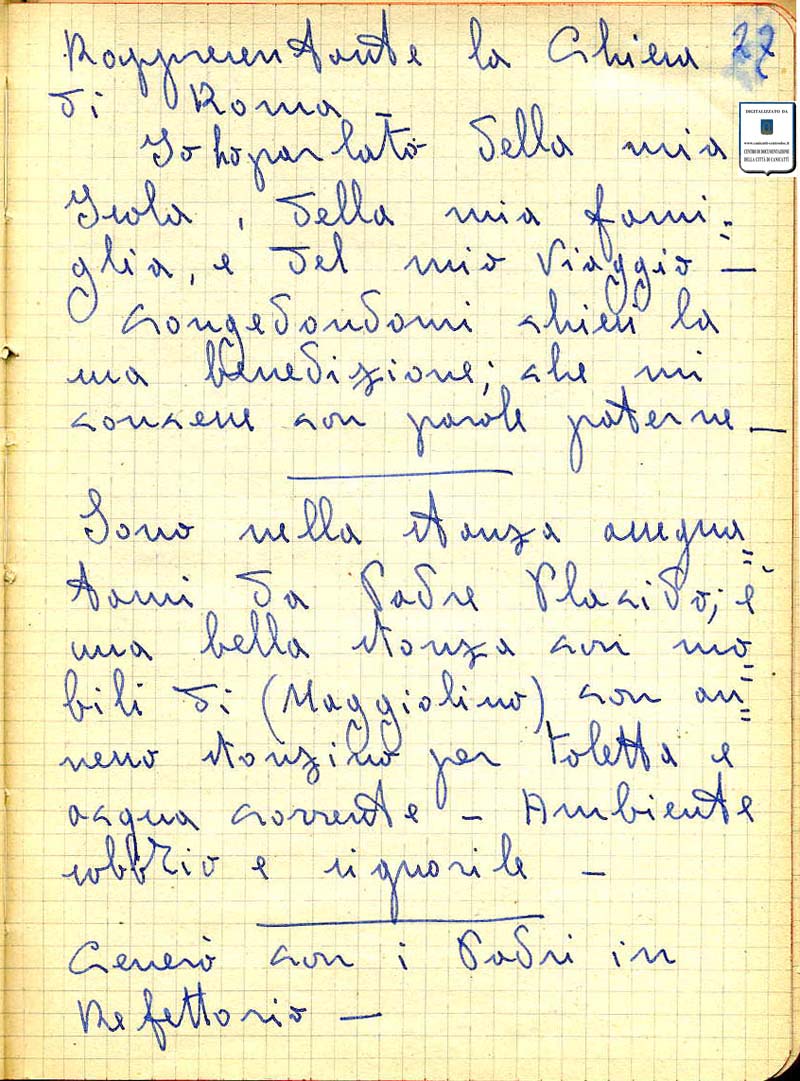 Rappresentante la Chiesa 27
di Roma _
DIGITALIZZATO DA
www.canicatti-centrodoc.it
CENTRO DI DOCUMENTAZIONE
DELLA CITTÀ DI CANICATTÌ
Io ho parlato della mia
Isola, della mia fami=
glia, e del mio viaggio _
Congedandomi chiesi la
sua benedizione; che mi
concesse con parole paterne _
Sono nella stanza assegna=
tami da Padre Placido; è
una bella stanza con mo=
bili di (Maggiolino) con an=
nesso stanzino per toletta e
acqua corrente _ Ambiente
sobbrio e signorile _
Cenerò con i Padri in
Refettorio _